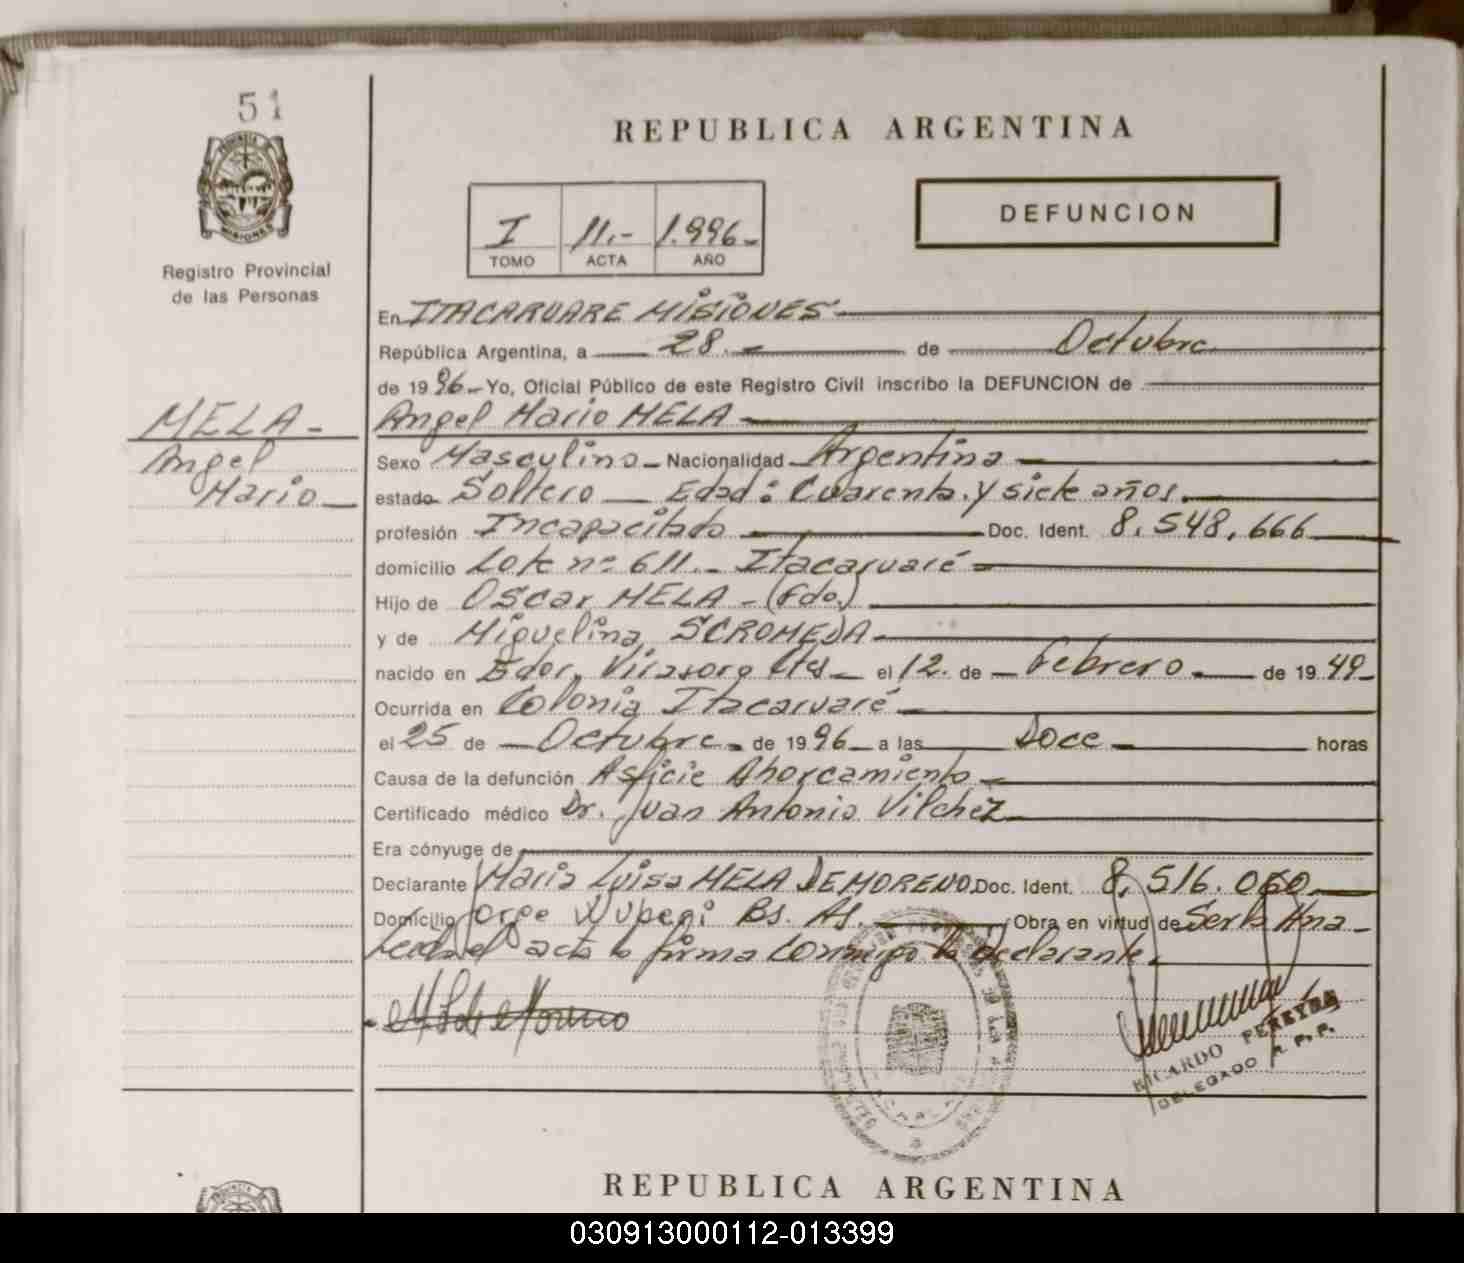 51
PROVINCIA DE
MISIONES
Registro Provincial
de las Personas
REPUBLICA ARGENTINA
I 11.- 1.996-
TOMO ACTA AÑO
DEFUNCION
En ITACARUARE MISIONES
República Argentina, a 28.- de Octubre
de 1996- Yo, Oficial Público de este Registro Civil inscribo la DEFUNCION de
MELA-
Angel Mario MELA
Angel
Mario
Sexo Masculino - Nacionalidad Argentina
estado Soltero Edad: Cuarenta y siete años.
profesión Incapacitado Doc. Ident. 8.548.666
domicilio Lote nº 611.- Itacaruaré
Hijo de Oscar MELA - (Fdo.)
y de Miguelina SCROMEDA-
nacido en Gdor. Virasoro Ctes el 12. de Febrero de 1949-
Ocurrida en Colonia Itacaruaré
el 25 de Octubre de 1996 a las Doce horas
Causa de la defunción Asficie Ahorcamiento
Certificado médico Dr. Juan Antonio Vilchez
Era cónyuge de
Declarante Maria Luisa MELA DE MORENO Doc. Ident. 8.516.060
Domicilio Jorge Bs. As. Obra en virtud de Ser la
Leida el acta la firma Conmigo la declarante.
RICARDO PEREYRA
DELEGADO R. P. P.
REPUBLICA ARGENTINA
030913000112-013399